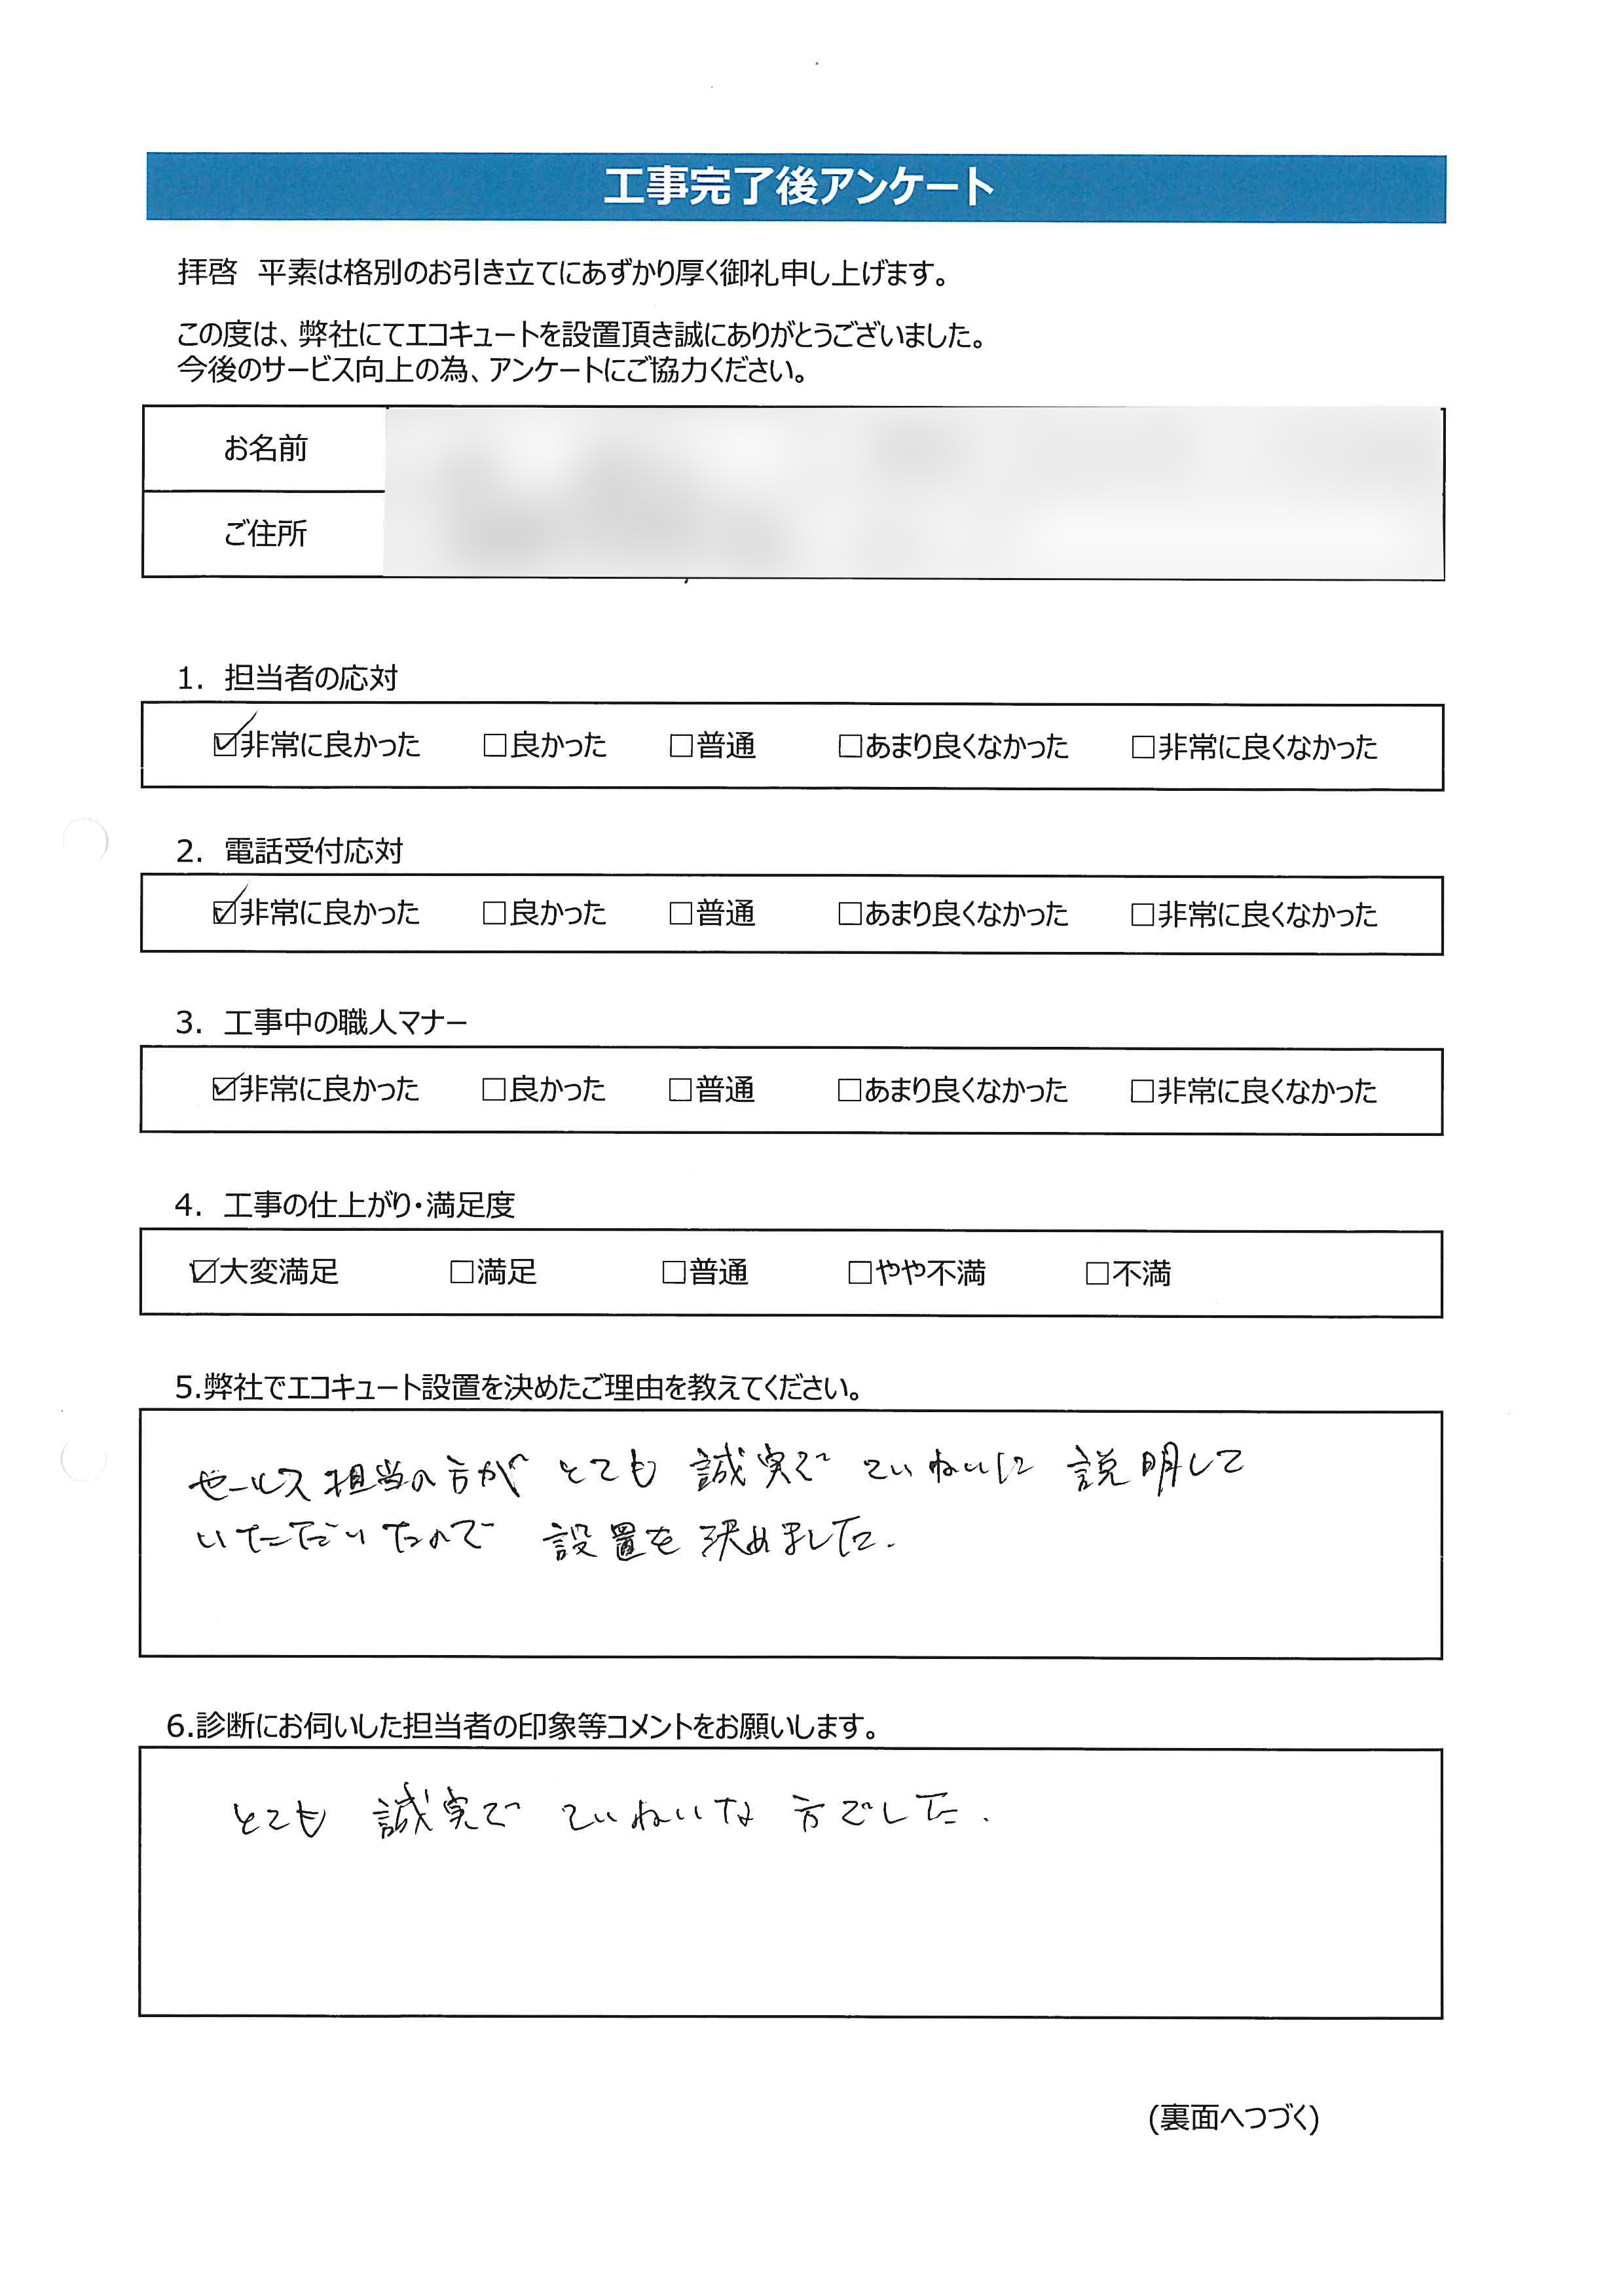 工事完了後アンケート
拝啓　平素は格別のお引き立てにあずかり厚く御礼申し上げます。
この度は、弊社にてエコキュートを設置頂き誠にありがとうございました。
今後のサービス向上の為、アンケートにご協力ください。
お名前
ご住所
1.　担当者の応対
☑非常に良かった　□良かった　□普通　□あまり良くなかった　□非常に良くなかった
2.　電話受付応対
☑非常に良かった　□良かった　□普通　□あまり良くなかった　□非常に良くなかった
3.　工事中の職人マナー
☑非常に良かった　□良かった　□普通　□あまり良くなかった　□非常に良くなかった
4.　工事の仕上がり・満足度
☑大変満足　□満足　□普通　□やや不満　□不満
5.弊社でエコキュート設置を決めたご理由を教えてください。
セールス担当の方が とても 誠実で ていねいに 説明して
いただいたので 設置を 決めました.
6.診断にお伺いした担当者の印象等コメントをお願いします。
とても 誠実で ていねいな 方でした.
(裏面へつづく)